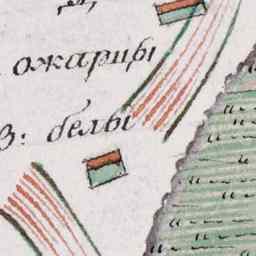 ожарцы
в: белы